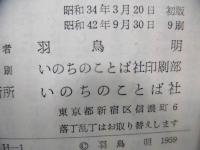 昭和34年3月20日 初版
昭和42年9月30日 9刷
者 羽鳥明
刷 いのちのことば社印刷部
所 いのちのことば社
東京都新宿区信濃町6
落丁乱丁はお取り替えします
H—1 © 羽鳥 明 1959